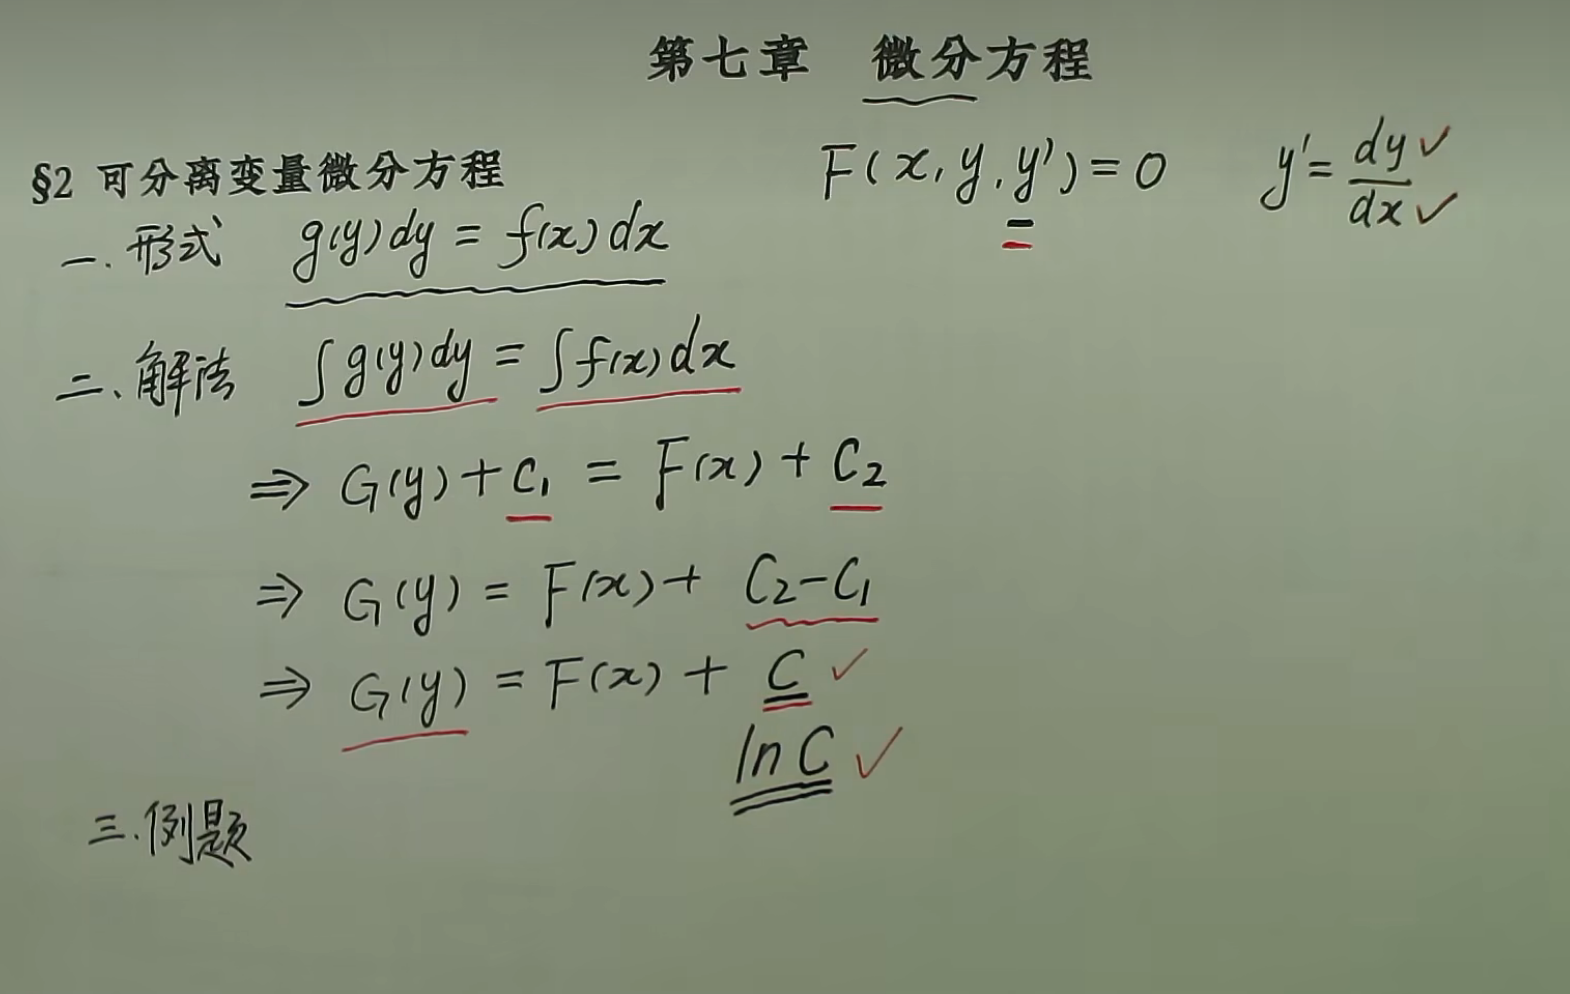 第七章 微分方程
§2 可分离变量微分方程
F(x,y,y')=0 y'=dy/dx
一.形式 g(y)dy=f(x)dx
二、解法 ∫g(y)dy=∫f(x)dx
⇒ G(y)+C₁=F(x)+C₂
⇒ G(y)=F(x)+C₂-C₁
⇒ G(y)=F(x)+C
ln C
三.例题